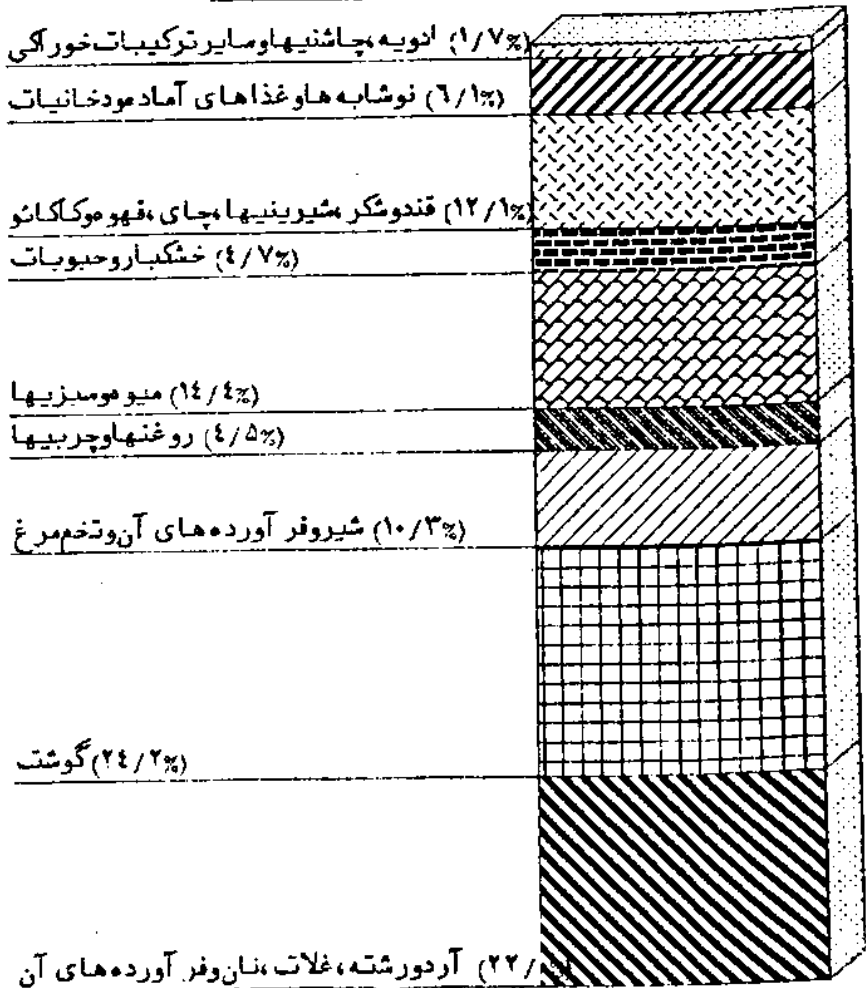 ادویه، چاشنیها و سایر ترکیبات خوراکی (۱/۷%)
نوشابه ها و غذاهای آماده و دخانیات (۶/۱%)
قندوشکر، شیرینیها، چای، قهوه و کاکائو (۱۲/۱%)
خشکبار و حبوبات (۴/۷%)
میوه و سبزیها (۱۴/۴%)
روغنها و چربیها (۴/۵%)
شیر و فرآورده های آن و تخم مرغ (۱۰/۳%)
گوشت (۲۴/۲%)
آرد و رشته، غلات، نان و فرآورده های آن